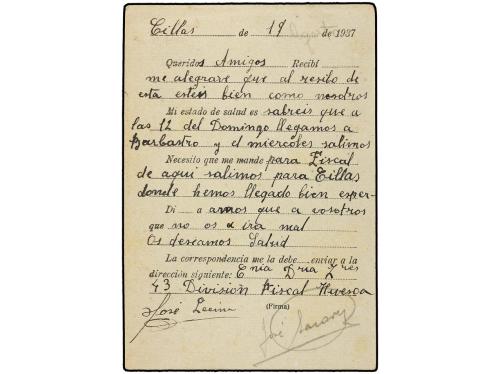 Cillas de 19 de 1937
Queridos Amigos Recibí
me alegrare que al resito de
esta esteis bien como nosotros
Mi estado de salud es sabreis que a
las 12 del Domingo llegamos a
Barbastro y el miercoles salimos
Necesito que me mande para Fiscal
de aqui salimos para Cillas
donde hemos llegado bien esper-
Di a amos que a vosotros
que no os ira mal
Os deseamos Salud
La correspondencia me la debe enviar a la
dirección siguiente:
43 División Fiscal Huesca
José
(Firma)
José